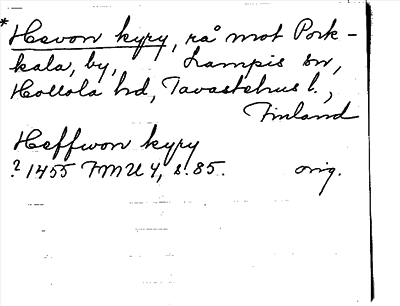 *Hevon kyry, rå mot Pork-
kala, by, Lampis sn,
Hollola hd, Tavastehus l.,
Finland
Heffwon kyry
? 1455 FMU 4, s. 85. orig.